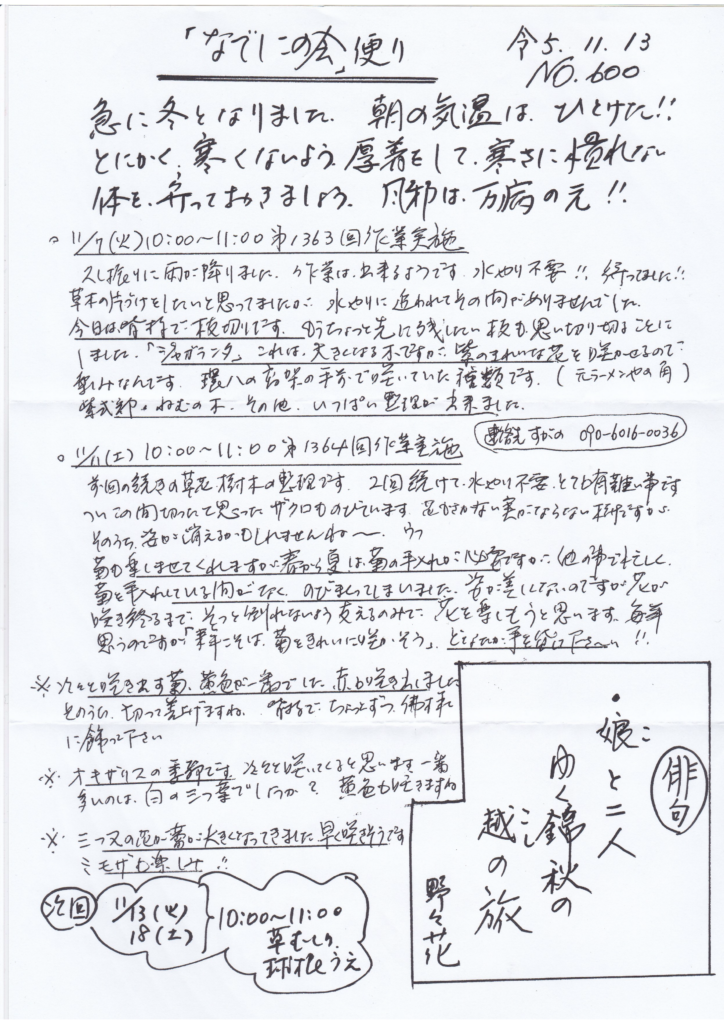 「なでしこの会」便り
令5.11.13
NO.600
急に冬となりました。朝の気温は、ひとけた!!
とにかく、寒くないよう、厚着をして、寒さに慣れない
体を、守っておきましょう。風邪は、万病の元!!
○11/7(火)10:00〜11:00 第1363回作業実施
久し振りに雨が降りました。作業は、出来るようです。水やり不要!! 待ってました!!
草木の片づけをしたいと思ってましたが、水やりに追われてその間がありませんでした。
今日は皆様で枝切りです。もうちょっと先に残したい枝も思い切り切ることに
しました。「ジャガランタ」これは、大きくなる木ですが、紫のきれいな花を咲かせるので
楽しみなんです。環八の高架の手前で咲いていた種類です。(元ラーメンやの角)
紫式部、ねむの木、その他、いっぱい整理が出来ました。
連絡先 すがの 090-6016-0036
○11/11(土)10:00〜11:00 第1364回作業実施
前回の続きの草花樹木の整理です。2回続けて、水やり不要、とても有難い事です
ついこの間切ったと思ったザクロものびています。花もさかない実がならない樹ですが、
そのうち、姿が消えるかもしれませんね〜。
菊も楽しませてくれますが春から夏は、菊の手入れが必要ですが、他の事で忙しく、
菊を手入れしている間がなく、のびまくってしまいました。姿が美しくないのですが花が
咲き終るまで、そっと倒れないよう支えるのみで、花を楽しもうと思います。毎年
思うのですが「来年こそは、菊をきれいに咲かそう」、どなたか手を貸して下さ〜い!!
※次々と咲き出す菊、黄色が一番でした。赤も咲き出しました
そのうち、切って差上げますね。皆様で、ちょっとずつ、佛様
に飾って下さい
※オキザリスの季節です。次々と咲いてくると思います。一番
多いのは、白の三つ葉でしょうか? 黄色も咲きますね
※三つ又の花が蕾が大きくなってきました 早く咲きそうです
ミモザも楽しみ!!
次回
11/13(火)
18(土)
10:00〜11:00
草むしり
球根うえ
俳句
・娘と二人
こ
ゆく錦秋の
越の旅
こし
野々花